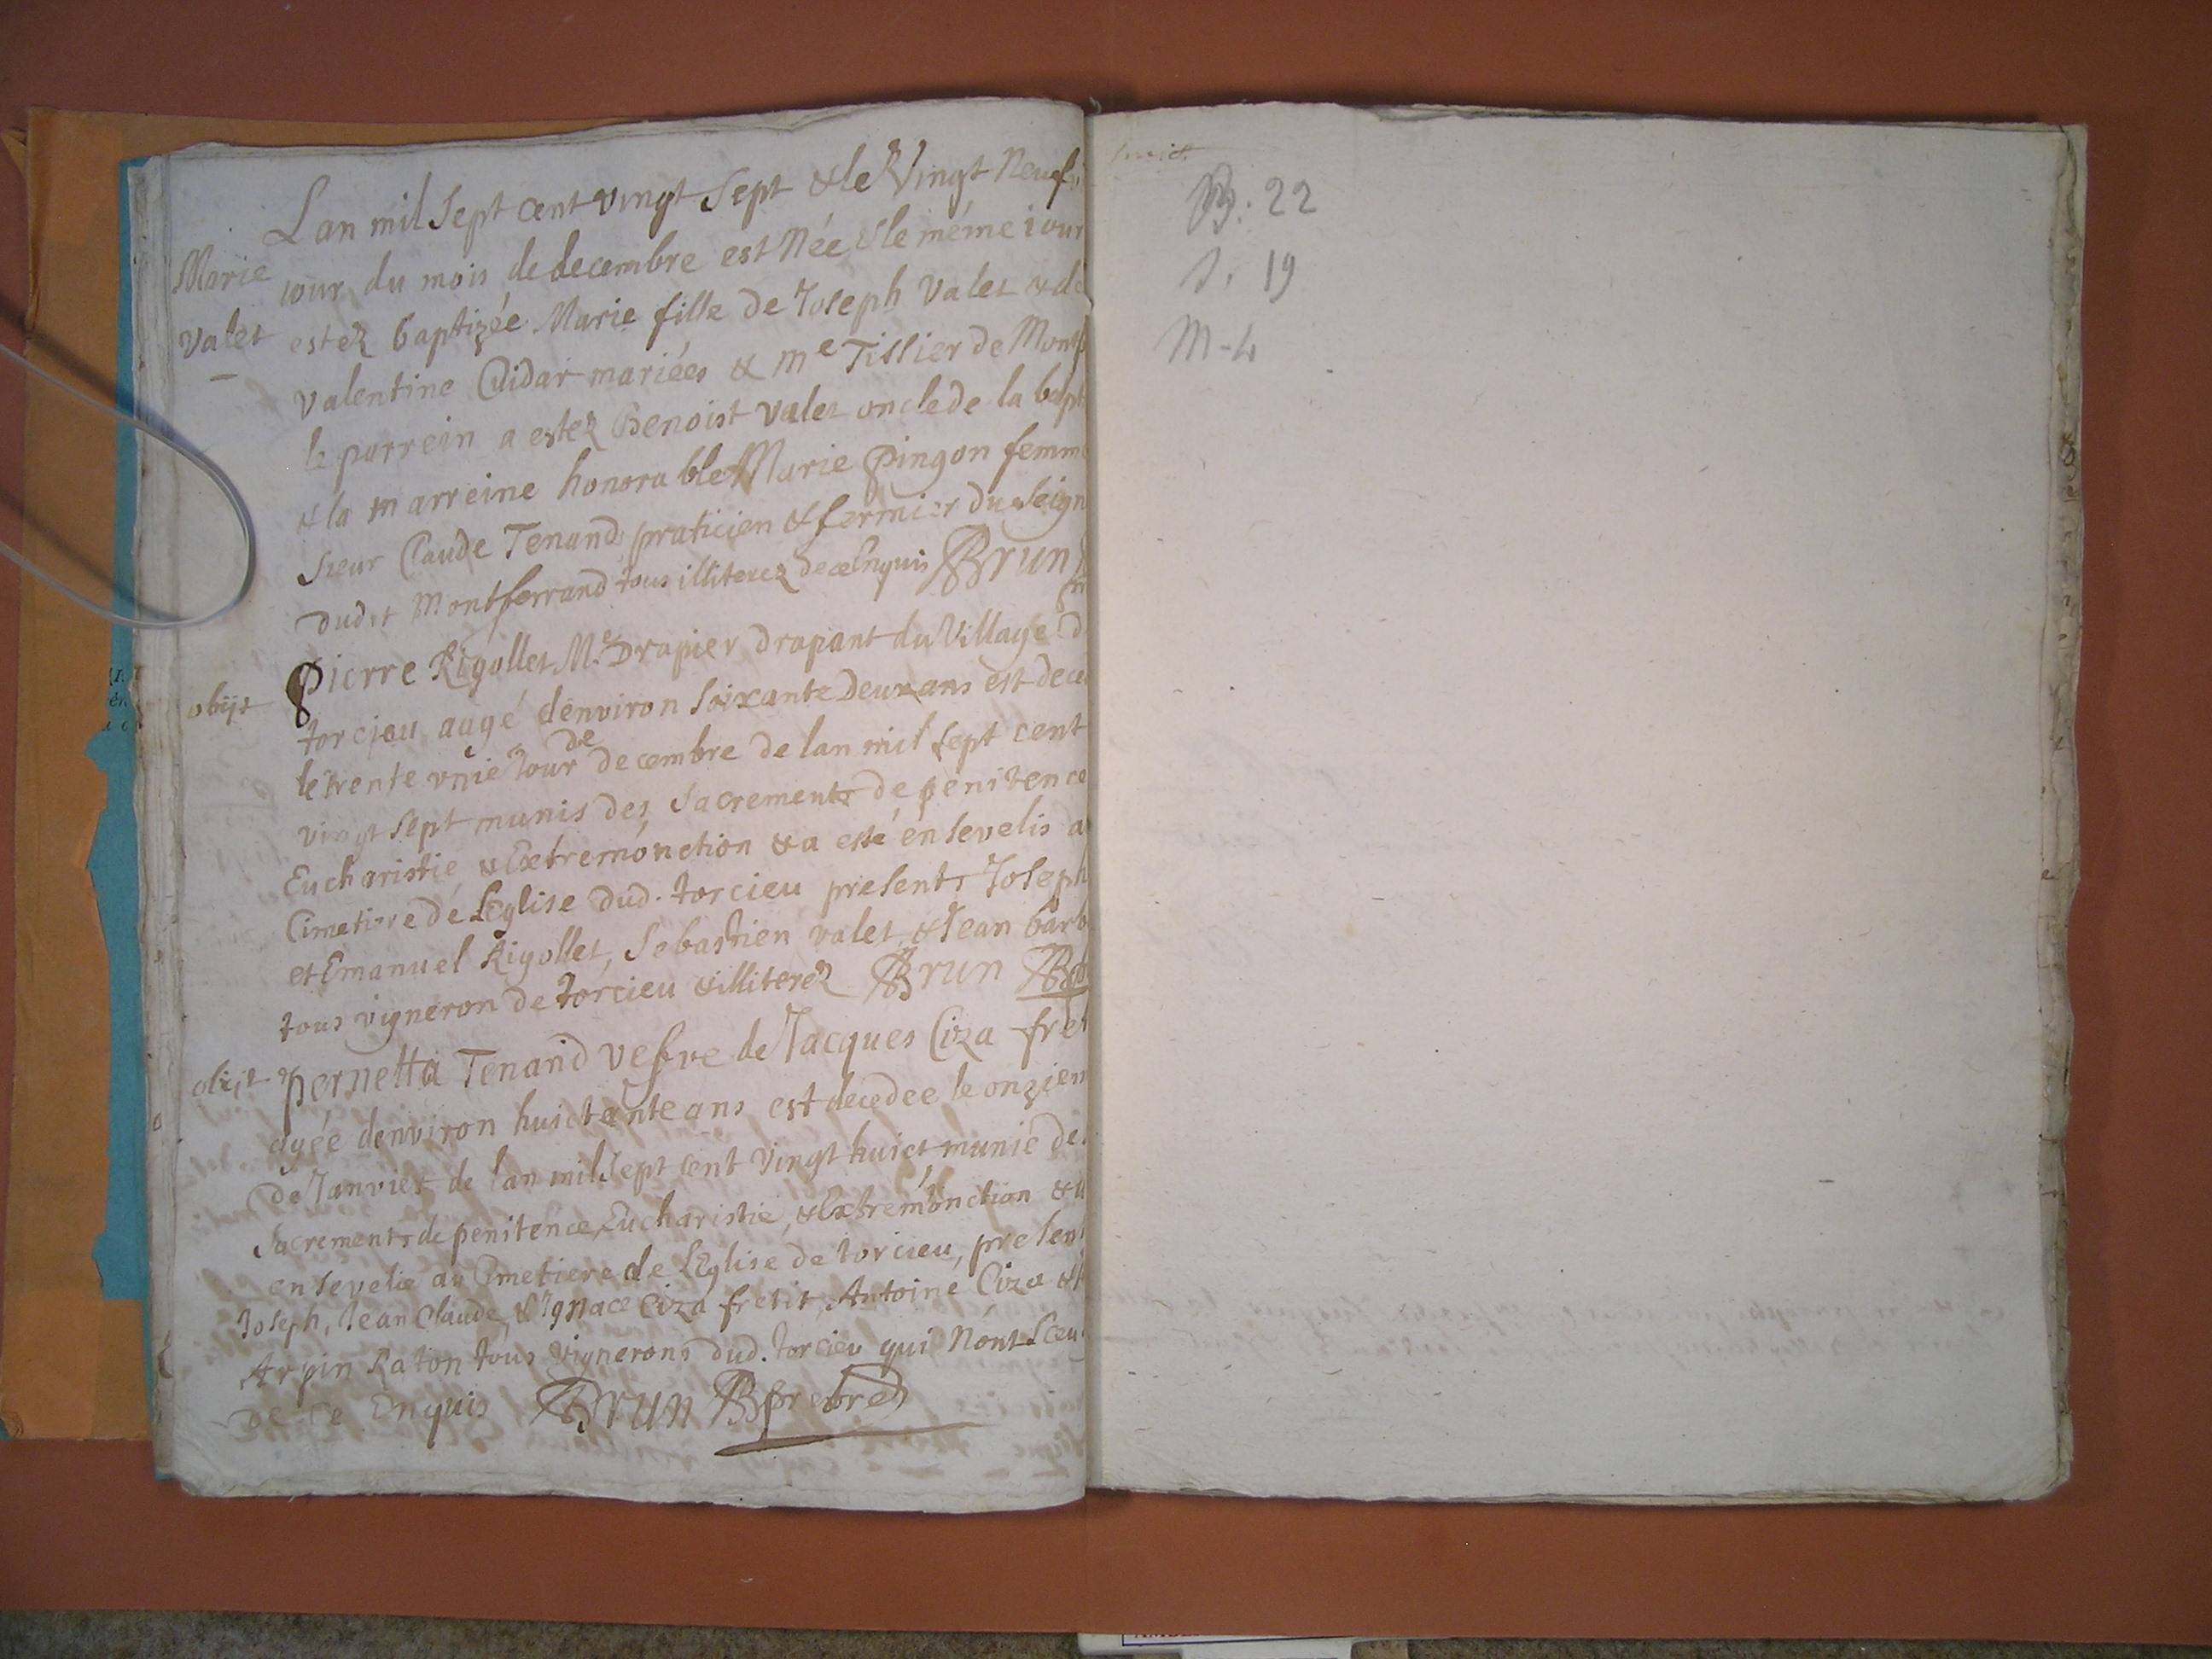 Lan mil sept cent vingt sept & le Vingt Neuf
Marie
iour du mois de decembre est Née & le méme iour
Valet
estez baptizée Marie fille de Joseph Valet & de
Valentine Didar mariées & me Tissier de Montf
le parrein a estez Benoist Valet oncle de la bapt
& la marreine honorable Marie Pingon femm
sieur Claude Tenand praticien & fermier du seign
dudit Montferrand tous illiterez de ce Enquis Brun
obijt
Pierre Rigollet Me Drapier drapant du Village d
torcieu augé denviron soixante Deux ans est dece
le trente vnie Jour de decembre de lan mil sept cent
vingt sept munis des sacrements de penitence
Eucharistie, & Extremonction & a esté ensevelis a
Cimetiere de LEglise dud. torcieu presents Joseph
et Emanuel Rigollet, Sebastien valet, & Jean barb
tous vigneron de torcieu & illiterez Brun
obijt
pernetta Tenand vefve de Jacques Ciza fret
agée denviron huictante ans est decedee le onziem
de Janvier de lan mil sept cent Vingt huict munie de
sacrements de penitence Eucharistie, & Extremonction & a
ensevelie au Cimetiere de LEglise de torcieu, presen
Joseph, Jean Claude, & Ignace Ciza fretit, Antoine Ciza &
Arpin Raton tous vignerons dud. torcieu qui Nont sceu
de ce Enquis Brun B prebre
B. 22
S. 19
M-4